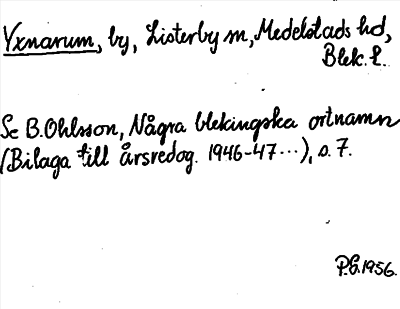 Yxnarum, by, Listerby sn, Medelstads hd,
Blek. l.
Se B. Ohlsson, Några blekingska ortnamn
(Bilaga till årsredog. 1946-47...), s. 7.
P.G. 1956.